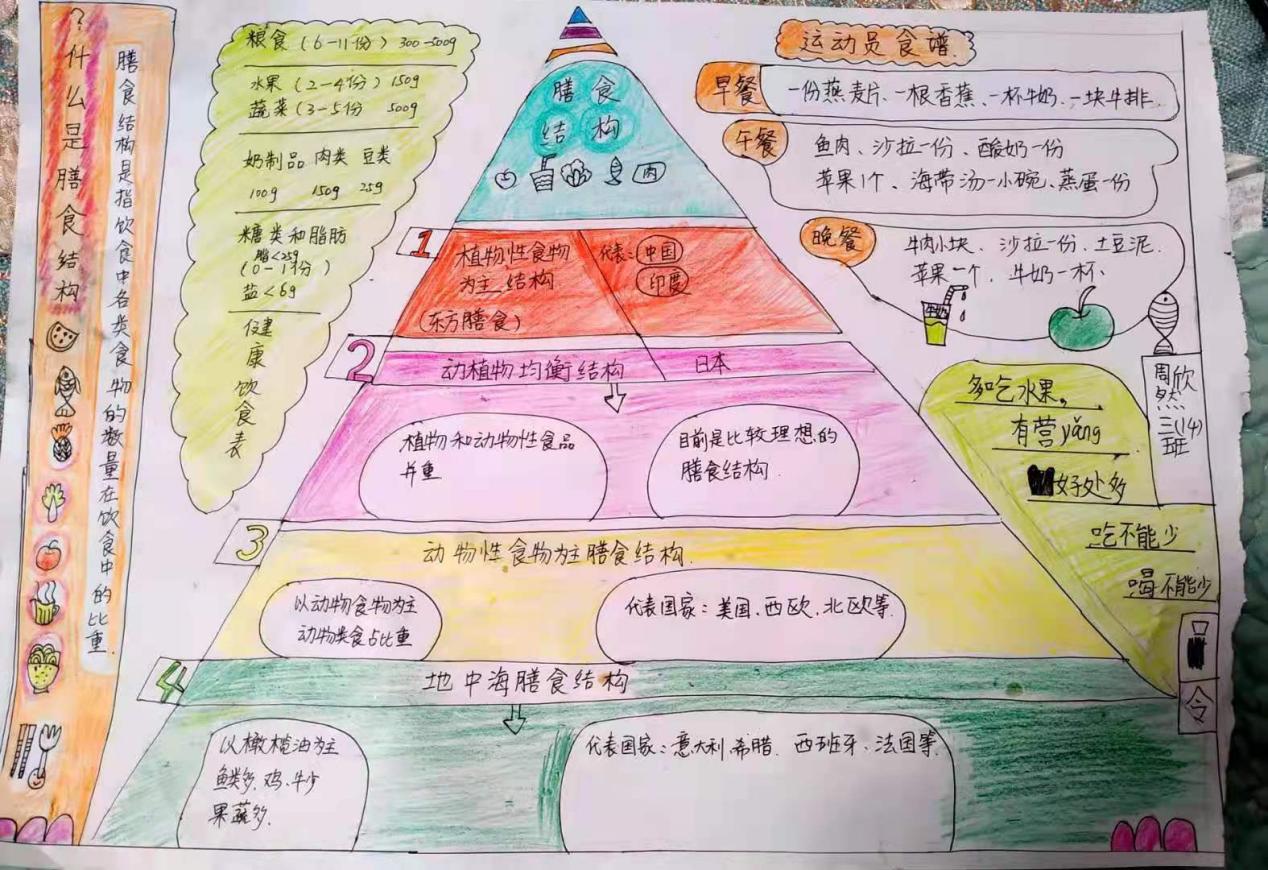 ？什么是膳食结构
膳食结构是指饮食中各类食物的数量在饮食中的比重.
粮食（6-11份）300-500g
水果（2-4份）150g
蔬菜（3-5份 500g
奶制品 肉类 豆类
100g 150g 25g
糖类和脂肪
脂<25g
（0-1份）
盐<6g
健康饮食表
膳食
结构
肉
1
植物性食物
为主 结构.
（东方膳食）
代表：中国
印度
2
动植物均衡结构
日本
植物和动物性食品
并重
目前是比较理想的
膳食结构.
3
动物性食物为主膳食结构.
以动物食物为主
动物类食占比重
代表国家：美国、西欧、北欧等.
4
地中海膳食结构
以橄榄油为主
鱼类多.鸡、牛少
果蔬多.
代表国家：意大利.希腊.西班牙、法国等.
运动员食谱
早餐
一份燕麦片、一根香蕉、一杯牛奶、一块牛排.
午餐
鱼肉、沙拉一份、酸奶一份
苹果1个、海带汤一小碗、蒸蛋一份
晚餐
牛肉小块、沙拉一份、土豆泥.
苹果一个、牛奶一杯、
周欣然
三(14)班
多吃水果。
有营yǎng
好处多
吃不能少
喝不能少
令